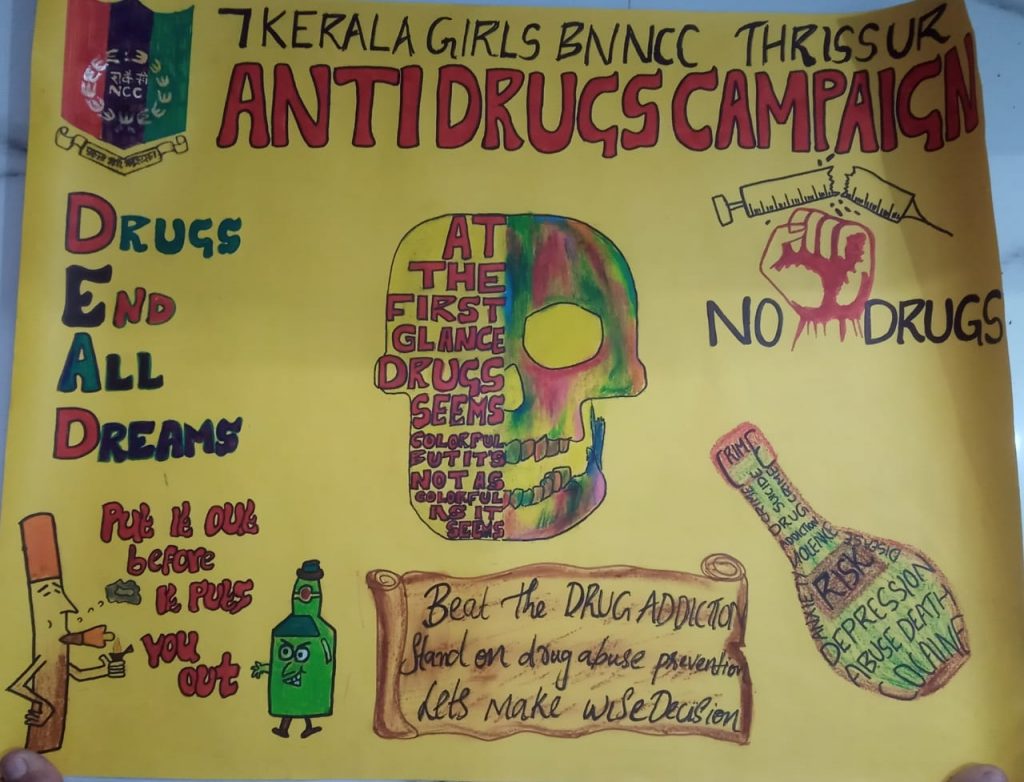 7 KERALA GIRLS BN NCC THRISSUR
ANTI DRUGS CAMPAIGN
NCC
DRUGS
END
ALL
DREAMS
AT
THE
FIRST
GLANCE
DRUGS
SEEMS
COLORFUL
BUT IT'S
NOT AS
COLORFUL
AS IT
SEEMS
NO DRUGS
Put it out
before
it puts
you
out
Beat the DRUG ADDICTION
Stand on drug abuse prevention
Lets make wise Decision
CRIME
SUICIDE
DRUG
ADDICTION
VIOLENCE
RISK
ANXIETY
DEPRESSION
ABUSE DEATH
COCAINE